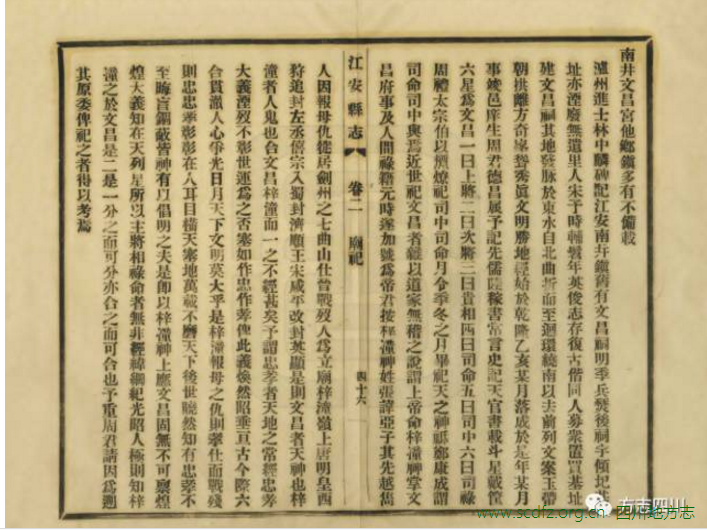 南井文昌宮他鄉鎮多有不備載
瀘州進士林中麟碑記江安南井鎮舊有文昌祠明季兵燹後祠宇傾圮基
址亦湮廢無遺里人宋予時輔雙年英俊志存復古偕同人募衆置買基址
建文昌祠其地發脉於東水自北曲折而至迴環繞南以去前列文案玉帶
朝拱離方奇峯聳秀眞文明勝地經始於乾隆乙亥某月落成於是年某月
事竣邑庠生周君德昌屬予記先儒陸稼書常言史記天官書載斗星戴筐
六星爲文昌一曰上將二曰次將三曰貴相四曰司命五曰司中六曰司祿
周禮太宗伯以槱燎祀司中司命月令季冬之月畢祀天之神祗鄭康成謂
司命司中與焉近世祀文昌者雜以道家無稽之說謂上帝命梓潼神掌文
昌府事及人間祿籍元時遂加號爲帝君按梓潼神姓張諱亞子其先越嶲
江安縣志
卷二 廟祀
四十六
人因報母仇徙居劍州之七曲山仕晉戰歿人爲立廟梓潼嶺上唐明皇西
狩追封左丞僖宗入蜀封濟順王宋咸平改封英顯是則文昌者天神也梓
潼者人鬼也合文昌梓潼而一之不經甚矣予謂忠孝者天地之常經忠孝
大義湮烈不彰世運爲之否塞如作忠作孝俾此義煥然昭垂亘古今際六
合貫澈人心爭光日月天下文明莫大乎是梓潼報母之仇則孝仕而戰殘
則忠忠孝彰彰在人耳目積天塞地萬載不磨天下後世曉然知有忠孝不
至晦盲錮蔽皆神有以倡明之夫是卽以梓潼神上應文昌固無不可禦煌
煌大義知在天列星所以主將相祿命者無非經緯綱紀光昭人極則知梓
潼之於文昌是二是一分之而可分亦合之而可合也予重周君請因爲遡
其原委俾祀之者得以考焉
方志四川
www.scdfz.org.cn 四川地方志